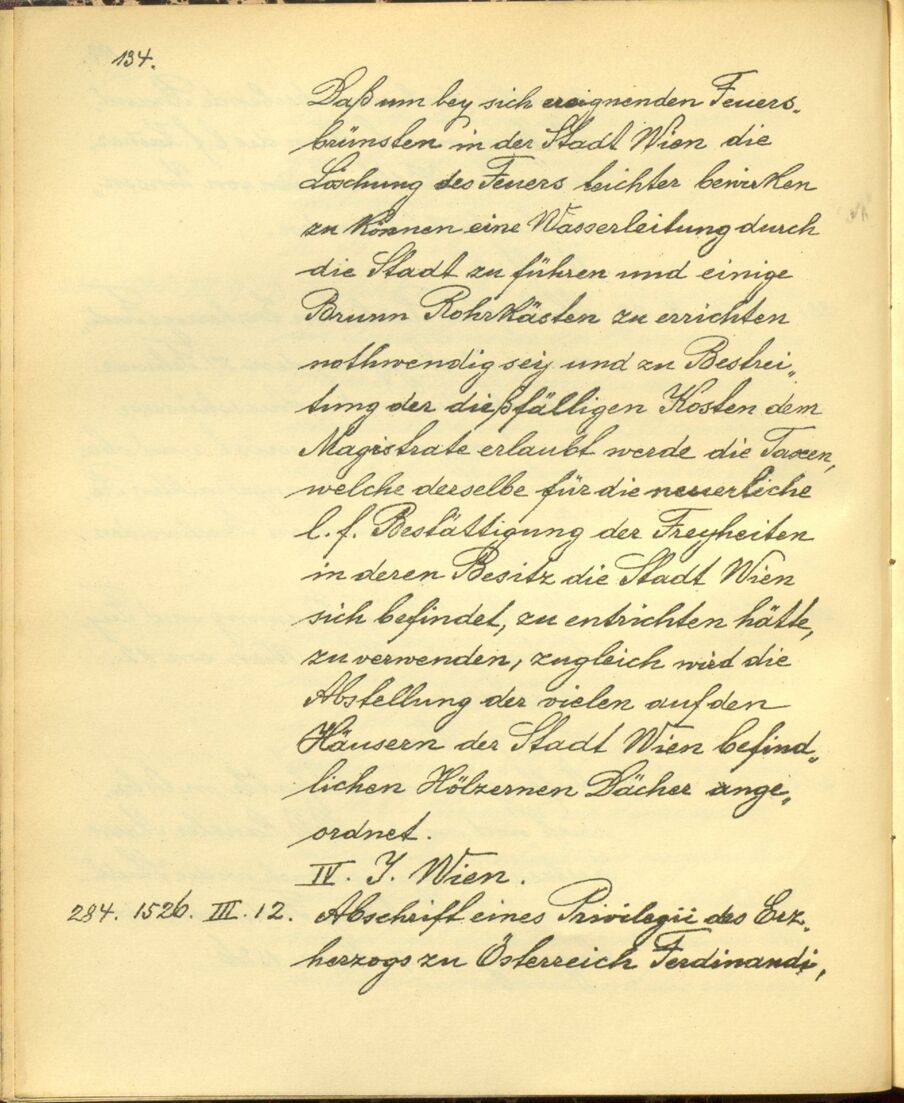 134.
Daß um bey sich ereignenden Feuers„
brünsten in der Stadt Wien die
Löschung des Feuers leichter bewirken
zu können eine Wasserleitung durch
die Stadt zu führen und einige
Brunn Rohrkästen zu errichten
nothwendig sey und zu Bestrei„
tung der dießfälligen Kosten dem
Magistrate erlaubt werde die Taxen,
welche derselbe für die neuerliche
l. f. Bestättigung der Freyheiten
in deren Besitz die Stadt Wien
sich befindet, zu entrichten hätte,
zu verwenden, zugleich wird die
Abstellung der vielen auf den
Häusern der Stadt Wien befind„
lichen Hölzernen Dächer ange„
ordnet.
IV. J. Wien.
284. 1526. III. 12. Abschrift eines Privilegii des Erz„
herzogs zu Österreich Ferdinandi,